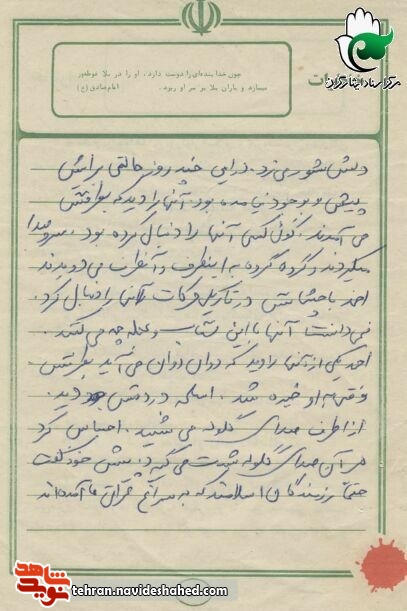 مرکز اسناد ایثارگران
خاطرات
چون خدا بنده‌ای را دوست دارد، او را در بلا غوطه‌ور
میسازد و باران بلا بر سر او ریزد. امام صادق (ع)
دلش شور می‌زد. در این چند روز حالتی برایش
پیش و بوجود نیامده بود. آنها را دید که بطرفش
می آمدند. گوئی کسی آنها را دنبال کرده بود، سر و صدا
میکردند و گروه گروه به اینطرف و آنطرف می‌دویدند
احمد با چشمانش در تاریکی حرکات آنها را دنبال کرد.
نمی‌دانست آنها با این شتاب و عجله چه می‌کنند.
احمد یکی از آنها را دید که دوان دوان می‌آید بطرفش
وقتی به او خیره شد، اسلحه در دستش دید.
از اطراف صدای گلوله می شنید. احساس کرد
هر آن صدای گلوله شدت می‌گیرد. پیش خود گفت
حتماً رزمندگان اسلامند که به سراغ عراقی‌ها آمده‌اند
نوید شاهد
tehran.navideshahed.com